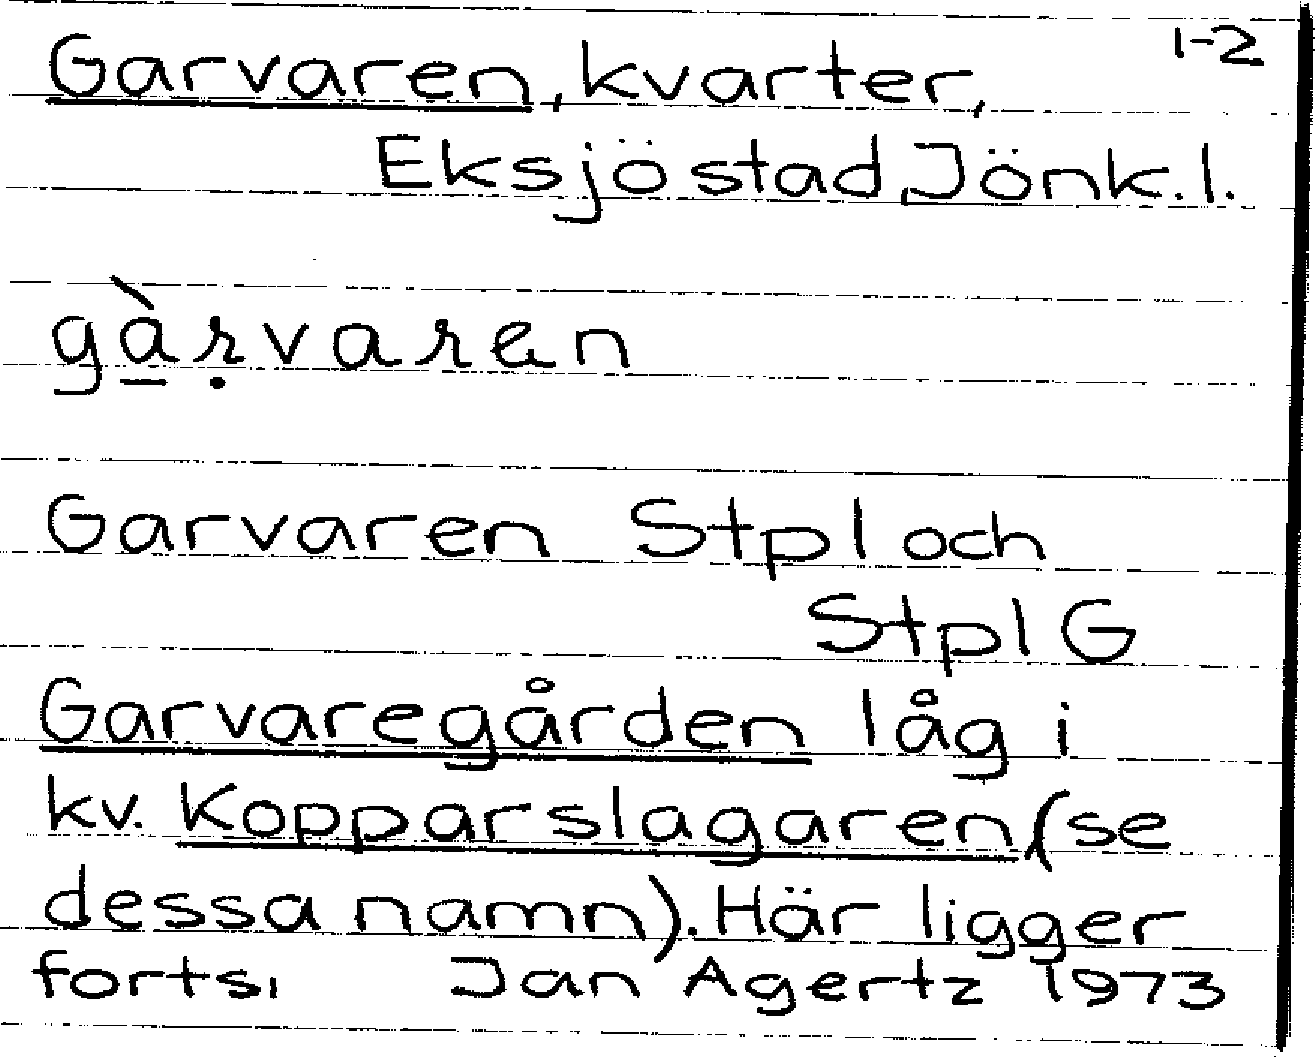 1-2
Garvaren, kvarter,
Eksjö stad, Jönk.l.
gàṛvaren
Garvaren Stpl och
Stpl G
Garvaregården låg i
kv. Kopparslagaren (se
dessa namn). Här ligger
forts. Jan Agertz 1973